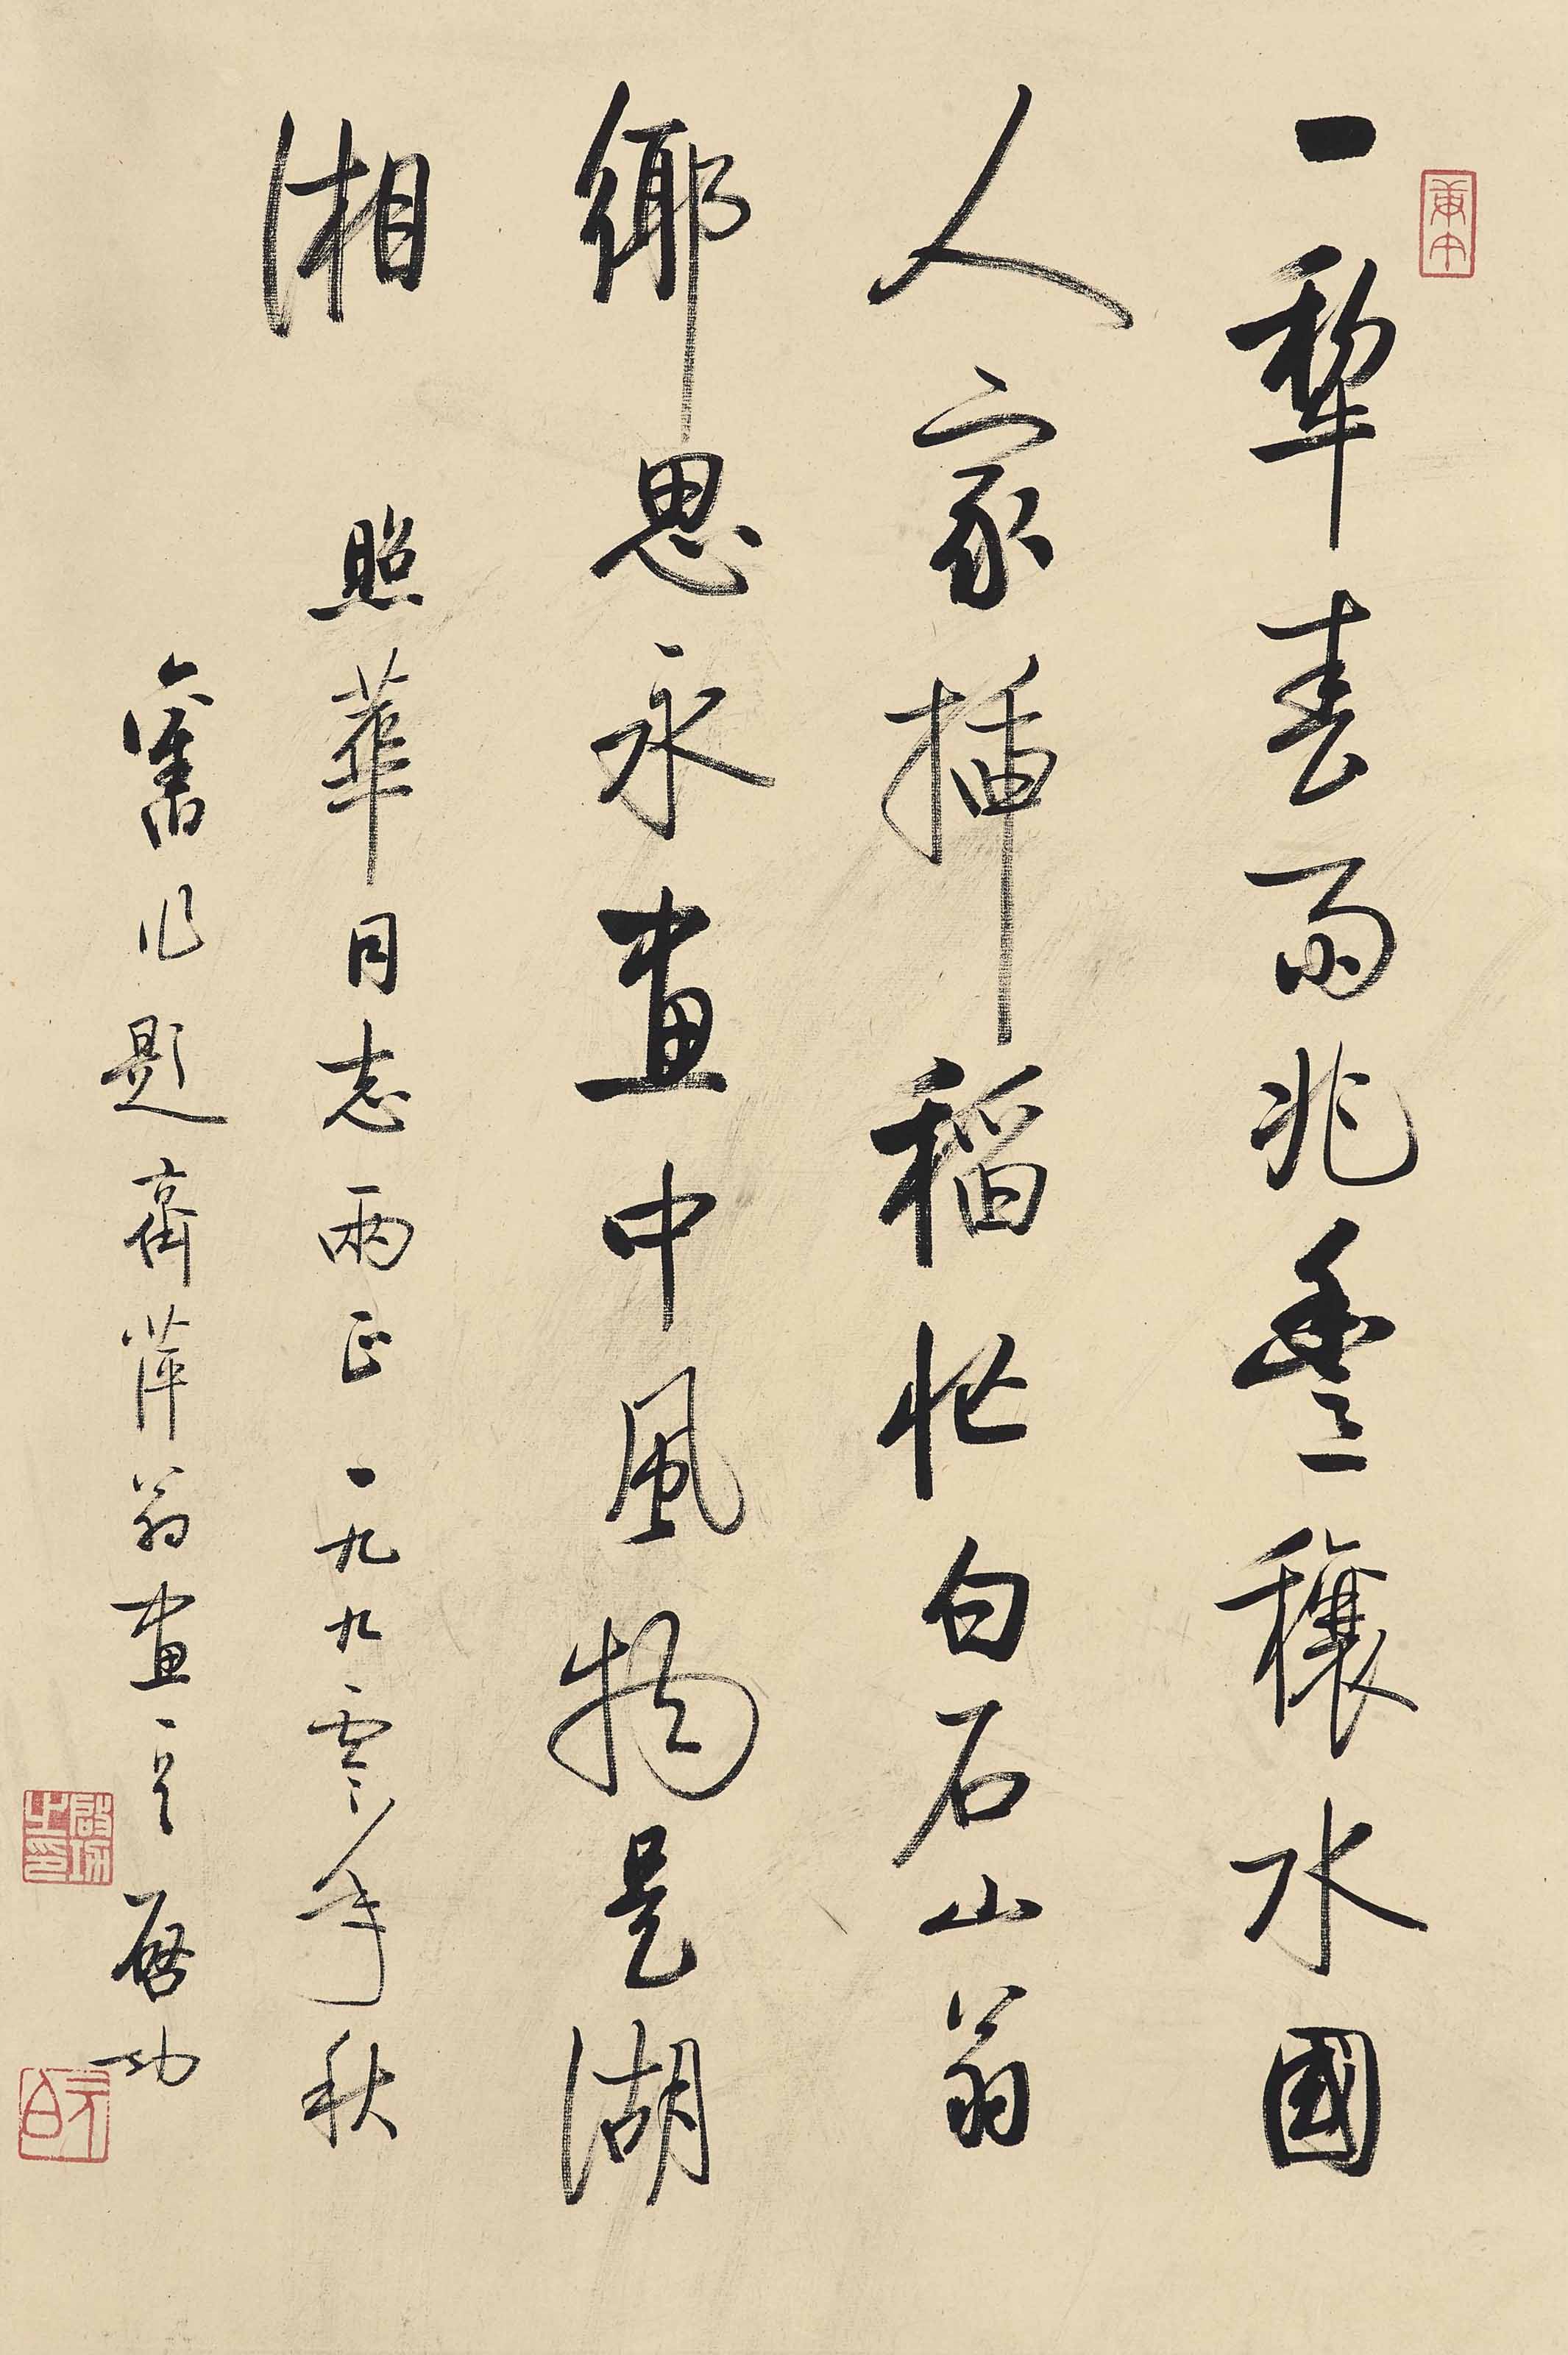 一犂春雨兆豐穰水國
人家插稻忙白石山翁
鄉思永畫中風物是湖
湘
照華同志兩正一九九零年秋
舊作題齊萍翁畫之一啟功
啟功之印